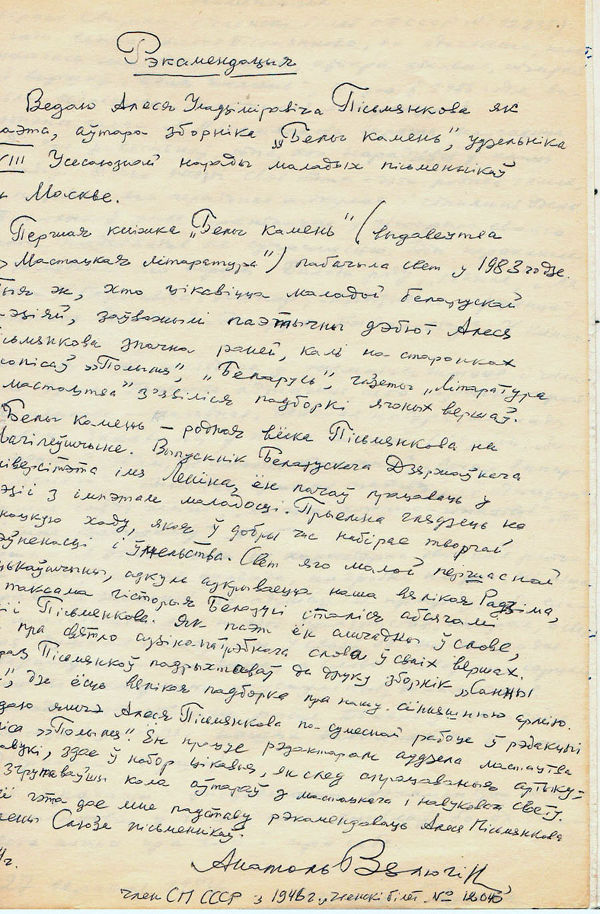 Рэкамендацыя
Ведаю Алеся Уладзіміравіча Пісьмянкова як
паэта, аўтара зборніка „Белы Камень“, удзельніка
VIII Усесаюзнай нарады маладых пісьменнікаў
Маскве.
Першая кніжка „Белы Камень“ (выдавецтва
Мастацкая літаратура“) пабачыла свет у 1983 годзе.
ж, хто цікавіцца маладой беларускай
заўважылі паэтычны дэбют Алеся
Пісьмянкова значна раней, калі на старонках
„Полымя“, „Беларусь“, газеты „Літаратура
мастацтва“ з'явіліся падборкі ягоных вершаў.
Белы Камень – родная вёска Пісьмянкова на
Магілеўшчыне. Выпускнік Беларускага Дзяржаўнага
універсітэта імя Леніна, ён пачаў працаваць у
з імпэтам маладосці. Прыемна глядзець на
хаду, якая ў добры час набірае творчай
і ўмельства. Свет яго малой першаснай
адкуль адкрываецца наша вялікая Радзіма,
таксама гісторыя Беларусі сталіся абсягам
Пісьмянкова. Як паэт ён ашчадны ў слове,
пра святло адзінапатрэбнага слова ў сваіх вершах.
Пісьмянкоў падрыхтаваў да друку зборнік
дзе ёсць вялікая падборка пра нашу сённяшнюю армію.
Алеся Пісьмянкова па сумеснай рабоце ў рэдакцыі
„Полымя“. Ён працуе рэдактарам аддзела мастацтва
здае ў набор цікавыя, як след апрацаваныя
кола аўтараў з мастацкага і навуковага свету.
гэта дае мне падставу рэкамендаваць Алеся Пісьмянкова
Саюза пісьменнікаў.
Анатоль Вялюгін,
член СП СССР з 1946 г., членскі білет №